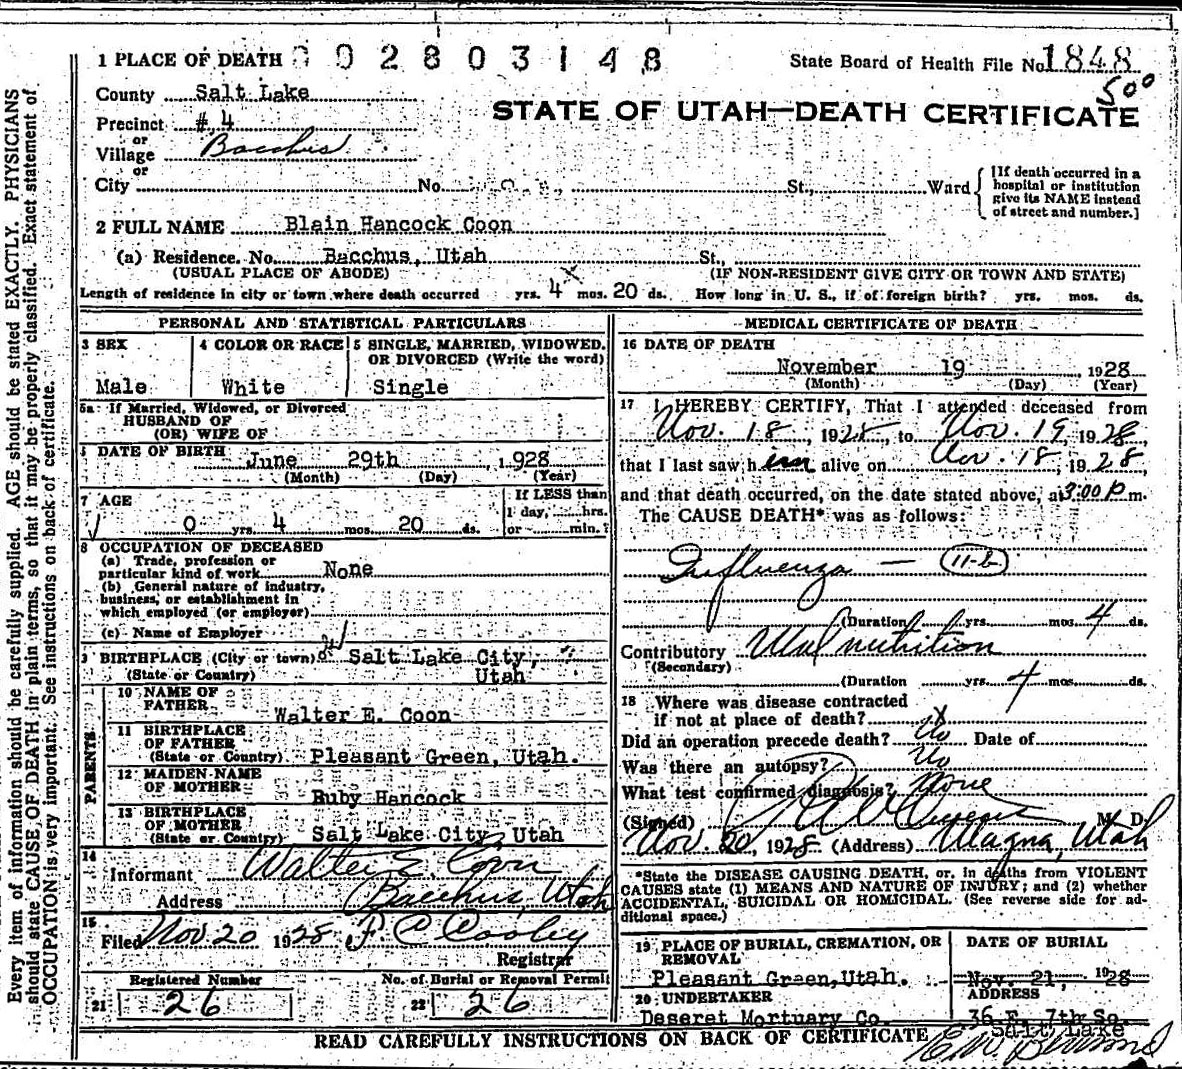 Every item of information should be carefully supplied. AGE should be stated EXACTLY. PHYSICIANS
should state CAUSE OF DEATH in plain terms, so that it may be properly classified. Exact statement of
OCCUPATION is very important. See instructions on back of certificate.
1 PLACE OF DEATH 02803148
State Board of Health File No. 1848
500
County Salt Lake
STATE OF UTAH—DEATH CERTIFICATE
Precinct #4
or
Village Bacchus
or
City No. St., Ward
[If death occurred in a
hospital or institution
give its NAME instead
of street and number.]
2 FULL NAME Blain Hancock Coon
(a) Residence. No. Bacchus, Utah St.,
(USUAL PLACE OF ABODE) (IF NON-RESIDENT GIVE CITY OR TOWN AND STATE)
Length of residence in city or town where death occurred yrs. 4 mos. 20 ds. How long in U. S., if of foreign birth? yrs. mos. ds.
PERSONAL AND STATISTICAL PARTICULARS
3 SEX
4 COLOR OR RACE
5 SINGLE, MARRIED, WIDOWED,
OR DIVORCED (Write the word)
Male
White
Single
5a If Married, Widowed, or Divorced
HUSBAND OF
(OR) WIFE OF
DATE OF BIRTH June 29th, 1928
(Month) (Day) (Year)
7 AGE
If LESS than
1 day, hrs.
or min.?
0 yrs. 4 mos. 20 ds.
8 OCCUPATION OF DECEASED
(a) Trade, profession or
particular kind of work None
(b) General nature of industry,
business, or establishment in
which employed (or employer)
(c) Name of Employer
9 BIRTHPLACE (City or town) Salt Lake City,
(State or Country) Utah
PARENTS
10 NAME OF
FATHER Walter E. Coon
11 BIRTHPLACE
OF FATHER
(State or Country) Pleasant Green, Utah.
12 MAIDEN NAME
OF MOTHER Ruby Hancock
13 BIRTHPLACE
OF MOTHER
(State or Country) Salt Lake City, Utah
14
Informant Walter E. Coon
Address Bacchus, Utah
15
Filed Nov 20 1928 F. C. Cooley
Registrar
Registered Number
21 26
No. of Burial or Removal Permit
22 26
MEDICAL CERTIFICATE OF DEATH
16 DATE OF DEATH
November 19 1928
(Month) (Day) (Year)
17 I HEREBY CERTIFY, That I attended deceased from
Nov. 18, 1928, to Nov. 19, 1928,
that I last saw him alive on Nov. 18, 1928
and that death occurred, on the date stated above, at 3:00 P.m.
The CAUSE DEATH* was as follows:
Influenza — 11-b
(Duration yrs. mos. 4 ds.
Contributory Malnutrition
(Secondary)
(Duration yrs. 4 mos. ds.
18 Where was disease contracted
if not at place of death?
Did an operation precede death? No Date of
Was there an autopsy? No
What test confirmed diagnosis? None
(Signed) M. D.
Nov. 20, 1928 (Address) Magna, Utah
*State the DISEASE CAUSING DEATH, or, in deaths from VIOLENT
CAUSES state (1) MEANS AND NATURE OF INJURY; and (2) whether
ACCIDENTAL, SUICIDAL OR HOMICIDAL. (See reverse side for ad-
ditional space.)
19 PLACE OF BURIAL, CREMATION, OR
REMOVAL
Pleasant Green, Utah.
DATE OF BURIAL
Nov. 21, 1928
20 UNDERTAKER
Deseret Mortuary Co.
ADDRESS
36 E. 7th So.
Salt Lake
READ CAREFULLY INSTRUCTIONS ON BACK OF CERTIFICATE